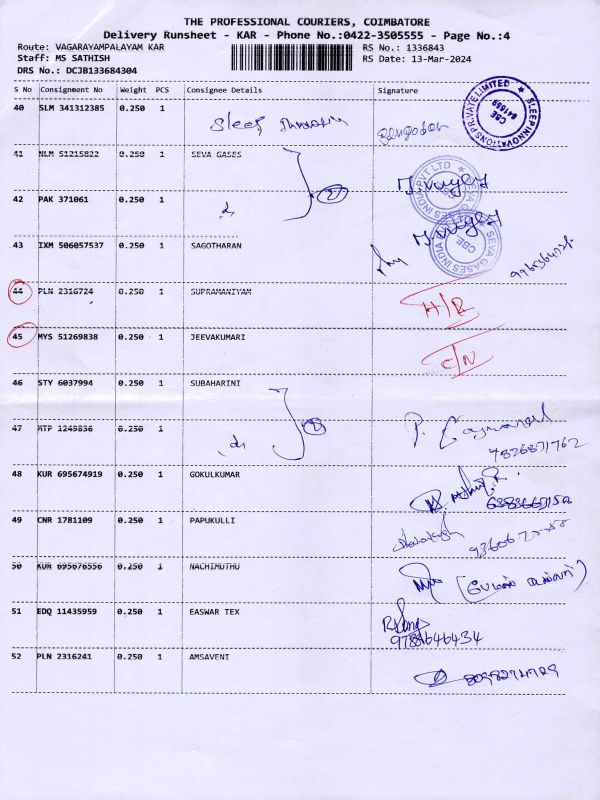 THE PROFESSIONAL COURIERS, COIMBATORE
Delivery Runsheet - KAR - Phone No.:0422-3505555 - Page No.:4
Route: VAGARAYAMPALAYAM KAR
RS No.: 1336843
Staff: MS SATHISH
RS Date: 13-Mar-2024
DRS No.: DCJB133684304
S No Consignment No Weight PCS Consignee Details Signature
40 SLM 341312385 0.250 1 Sleep
SLEEP INNOVATIONS PRIVATE LIMITED
CBE
641659
41 NLM 51215822 0.250 1 SEVA GASES
42 PAK 371061 0.250 1 2
SEVA GASES INDIA PVT LTD
CBE
43 IXM 506057537 0.250 1 SAGOTHARAN
SEVA GASES INDIA
CBE
44 PLN 2316724 0.250 1 SUPRAMANIYAM H/R
45 MYS 51269838 0.250 1 JEEVAKUMARI C/N
46 STY 6037994 0.250 1 SUBAHARINI
47 MTP 1249836 0.250 1 2
9826871762
48 KUR 695674919 0.250 1 GOKULKUMAR
49 CNR 1781109 0.250 1 PAPUKULLI
50 KUR 695676556 0.250 1 NACHIMUTHU
51 EDQ 11435959 0.250 1 EASWAR TEX
52 PLN 2316241 0.250 1 AMSAVENI